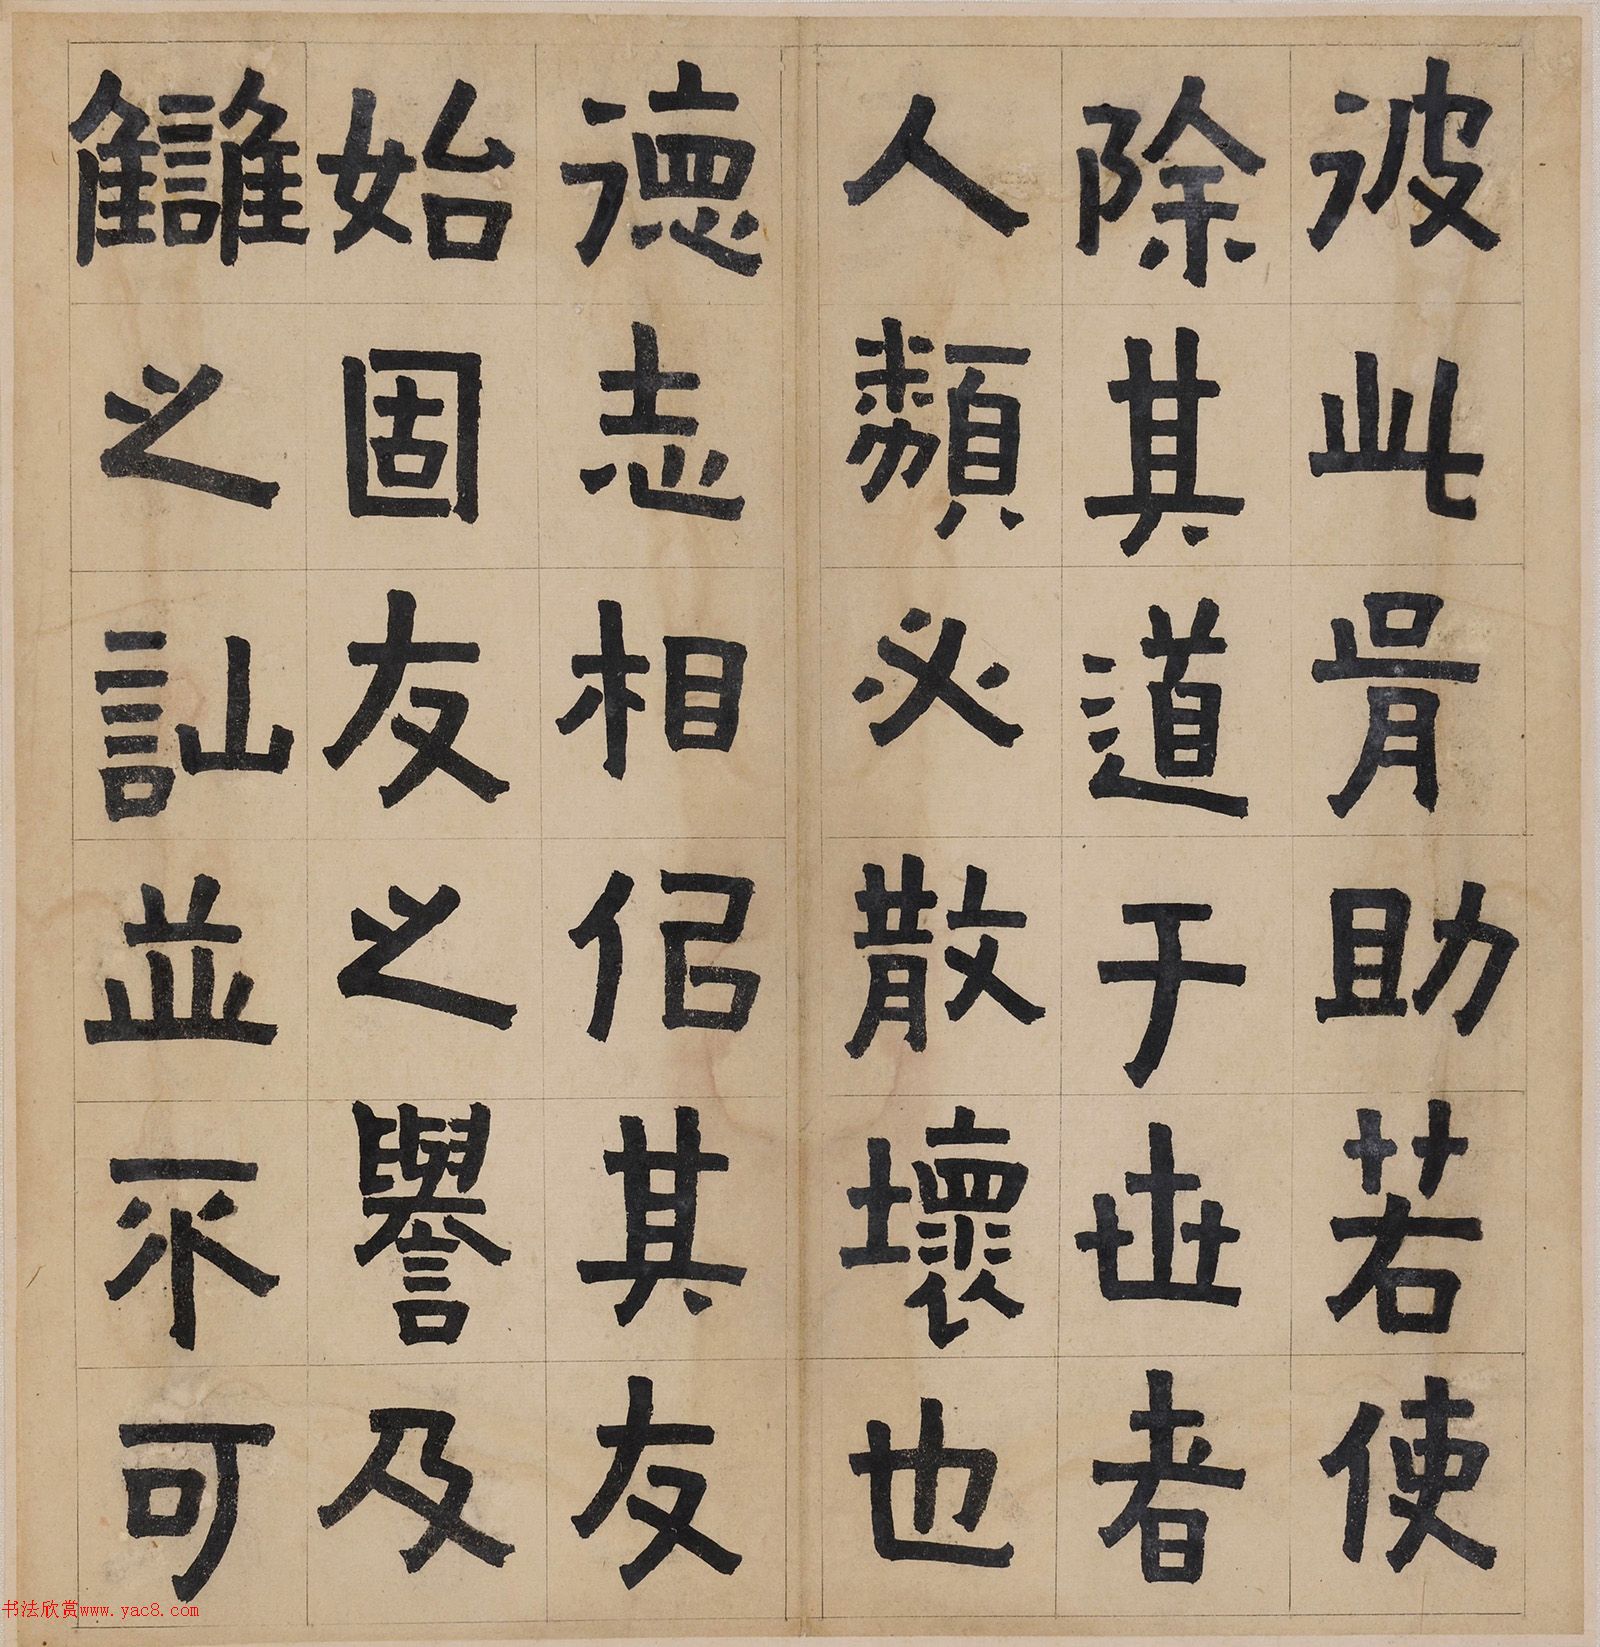 彼此胥助若使
除其道于世者
人類必散壞也
德志相侣其友
始固友之譽及
讎之訕並不可
书法欣赏www.yac8.com